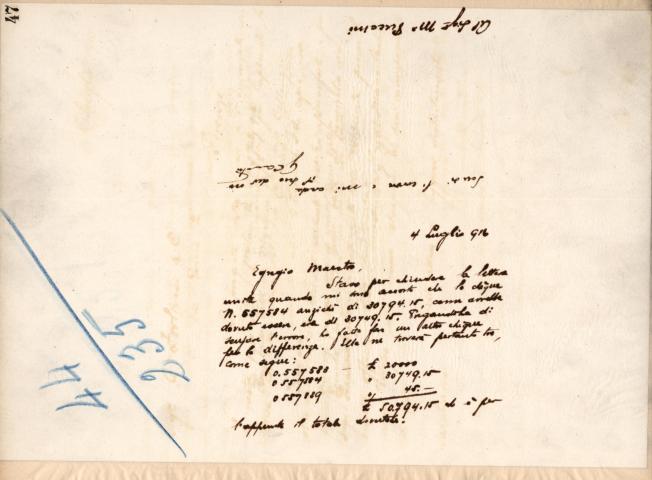 47
Al Sigr Mo Puccini
Scusi l'errore e mi creda
il suo dev.mo
4 Luglio 916
Egregio Maestro,
Stavo per chiudere la lettera
unita quando mi sono accorti che lo chèque
N. 557584 anzichè di 30794.15, come avrebbe
dovuto essere, era di 30749.15. Pregandola di
scusare l'errore, ho fatto fare un altro chèque
per la differenza. Ella ne troverà pertanto tre,
come segue:
0.557588 — £ 20000
0557584 " 30749.15
0557889 " 45.—
£ 50,794.15 che è per
l'appunto il totale dovutole!
44
235